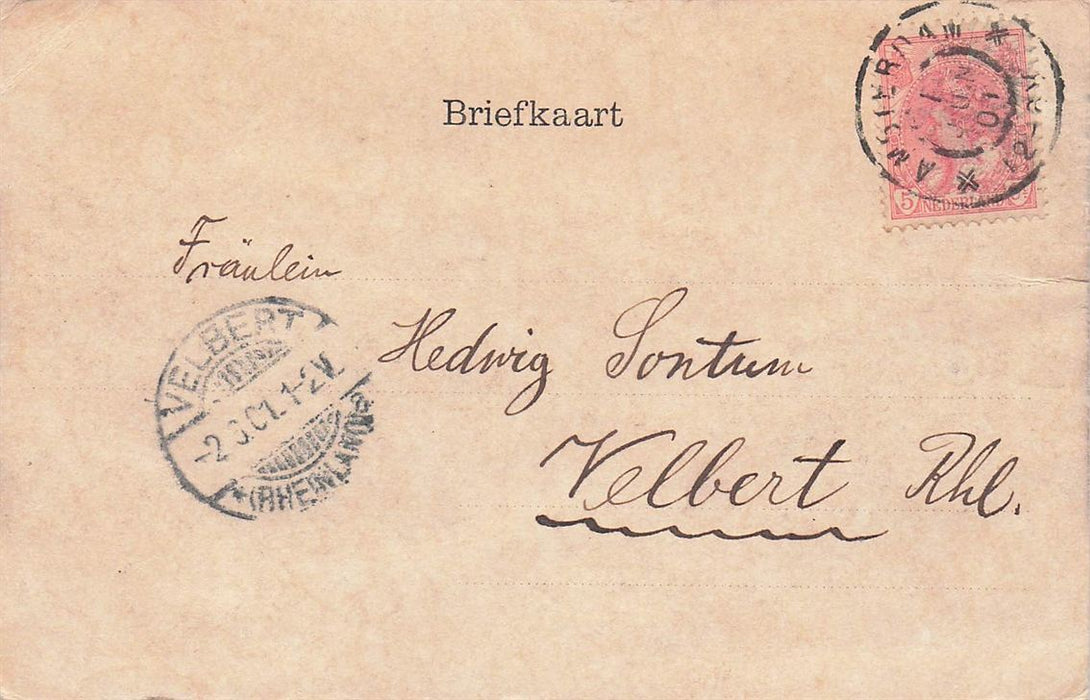 Briefkaart
AMSTERDAM
1
JUN
01
5
NEDERLAND
Fräulein
Hedwig Sontum
Velbert Rhl.
VELBERT
1-2V.
(RHEINLAND)